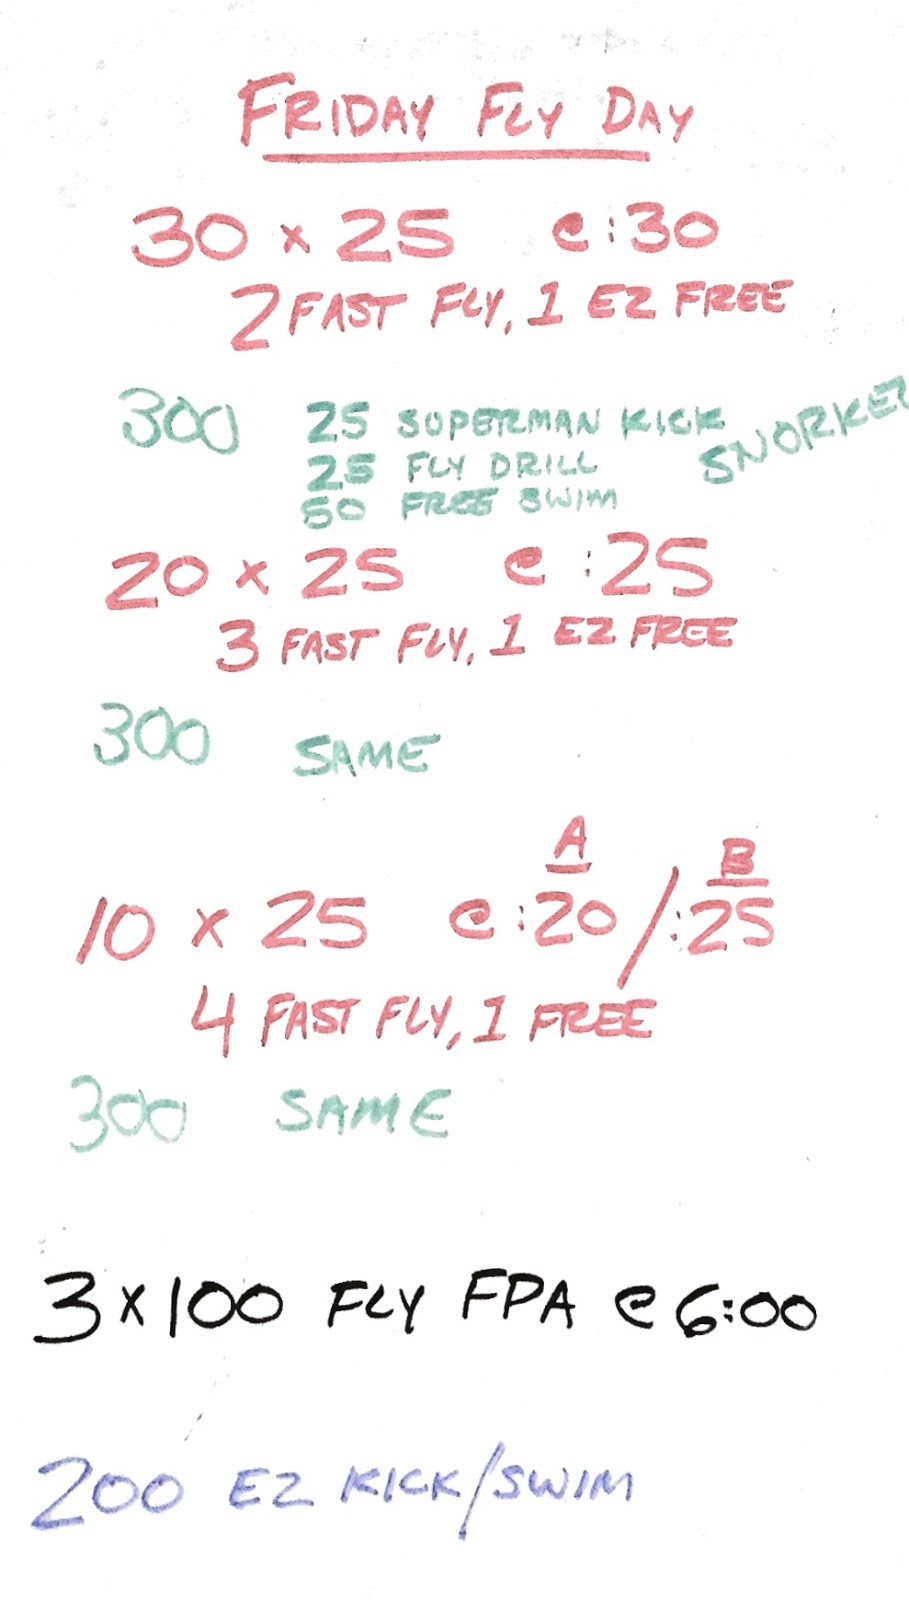 FRIDAY FLY DAY
30 x 25 @ :30
2 FAST FLY, 1 EZ FREE
300 25 SUPERMAN KICK SNORKEL
25 FLY DRILL
50 FREE SWIM
20 x 25 @ :25
3 FAST FLY, 1 EZ FREE
300 SAME
A B
10 x 25 @ :20 / :25
4 FAST FLY, 1 FREE
300 SAME
3 x 100 FLY FPA @ 6:00
200 EZ KICK/SWIM